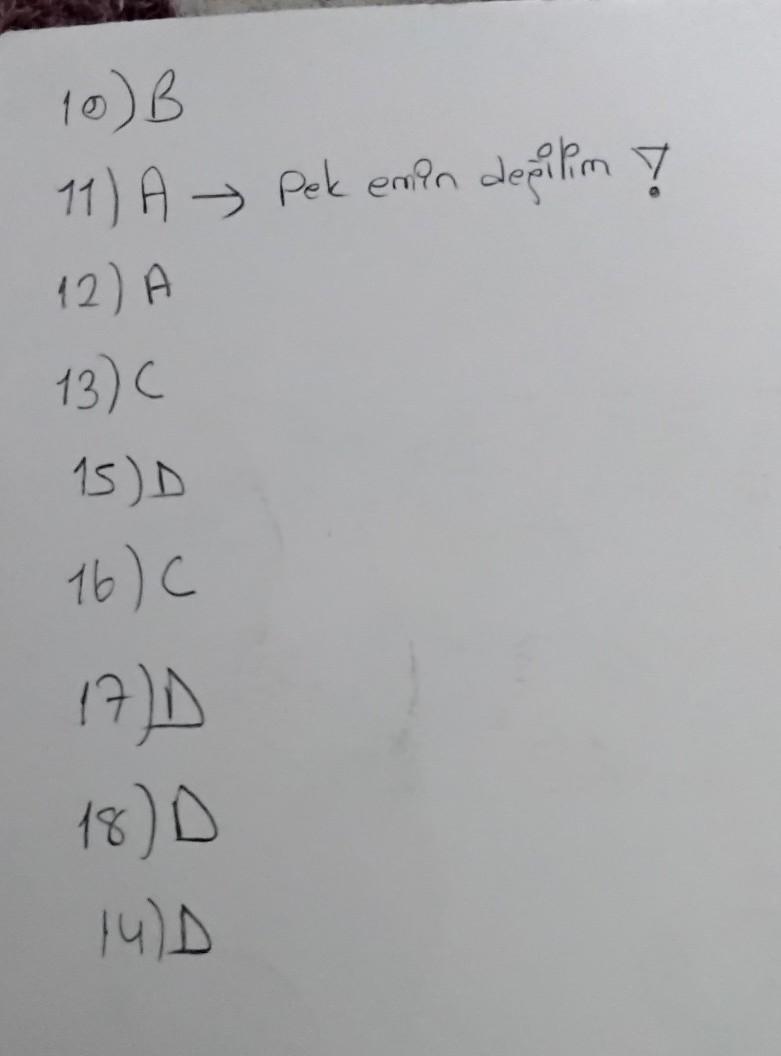 10) B
11) A → Pek emin değilim !
12) A
13) C
15) D
16) C
17) D
18) D
14) D